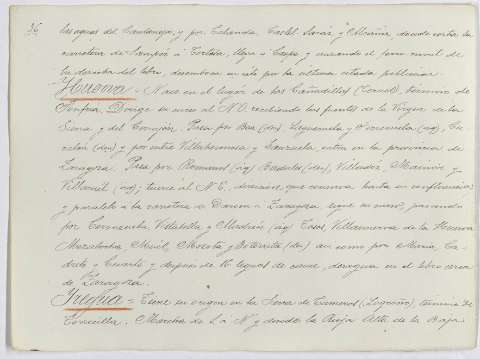 36
las aguas del Cantavieja, y por Calanda, Castel Serás y Alcañiz, donde corta la
carretera de a Tortosa, llega a Caspe y cruzando el ferro carril de
la derecha del Ebro, desemboca en este por la última citada población.
Huerva - Nace en el de los Cañadillos (Teruel), término de
Fonfría. Dirige su curso al N.O. recibiendo las fuentes de la Virgen de la
Sierra y del Corazón. Pasa por Bea (den), Lagueruela y Ferreruela (izq), Cu-
calón (den) y por entre Villahermosa y Lanzuela, entra en la provincia de
Zaragoza. Pasa por Romanos (izq) Badules (den), Villadoz, Mainar y
Villarreal (izq); tuerce al N.E., dirección que conserva hasta su confluencia
y paralelo a la carretera de Daroca a Zaragoza sigue su curso, pasando
por Cerveruela, Vistabella y (izq) Tosos, Villanueva de la Huerva
Mezalocha, Muel, Mozota y Botorrita (den) así como por María, Ca-
drete y Cuarte y después de 16 leguas de curso, desagua en el Ebro cerca
de Zaragoza.
Iregua = Tiene su origen en la Sierra de Cameros (Logroño), término de
. Marcha de S. a N. y donde la Rioja Alta de la Baja.